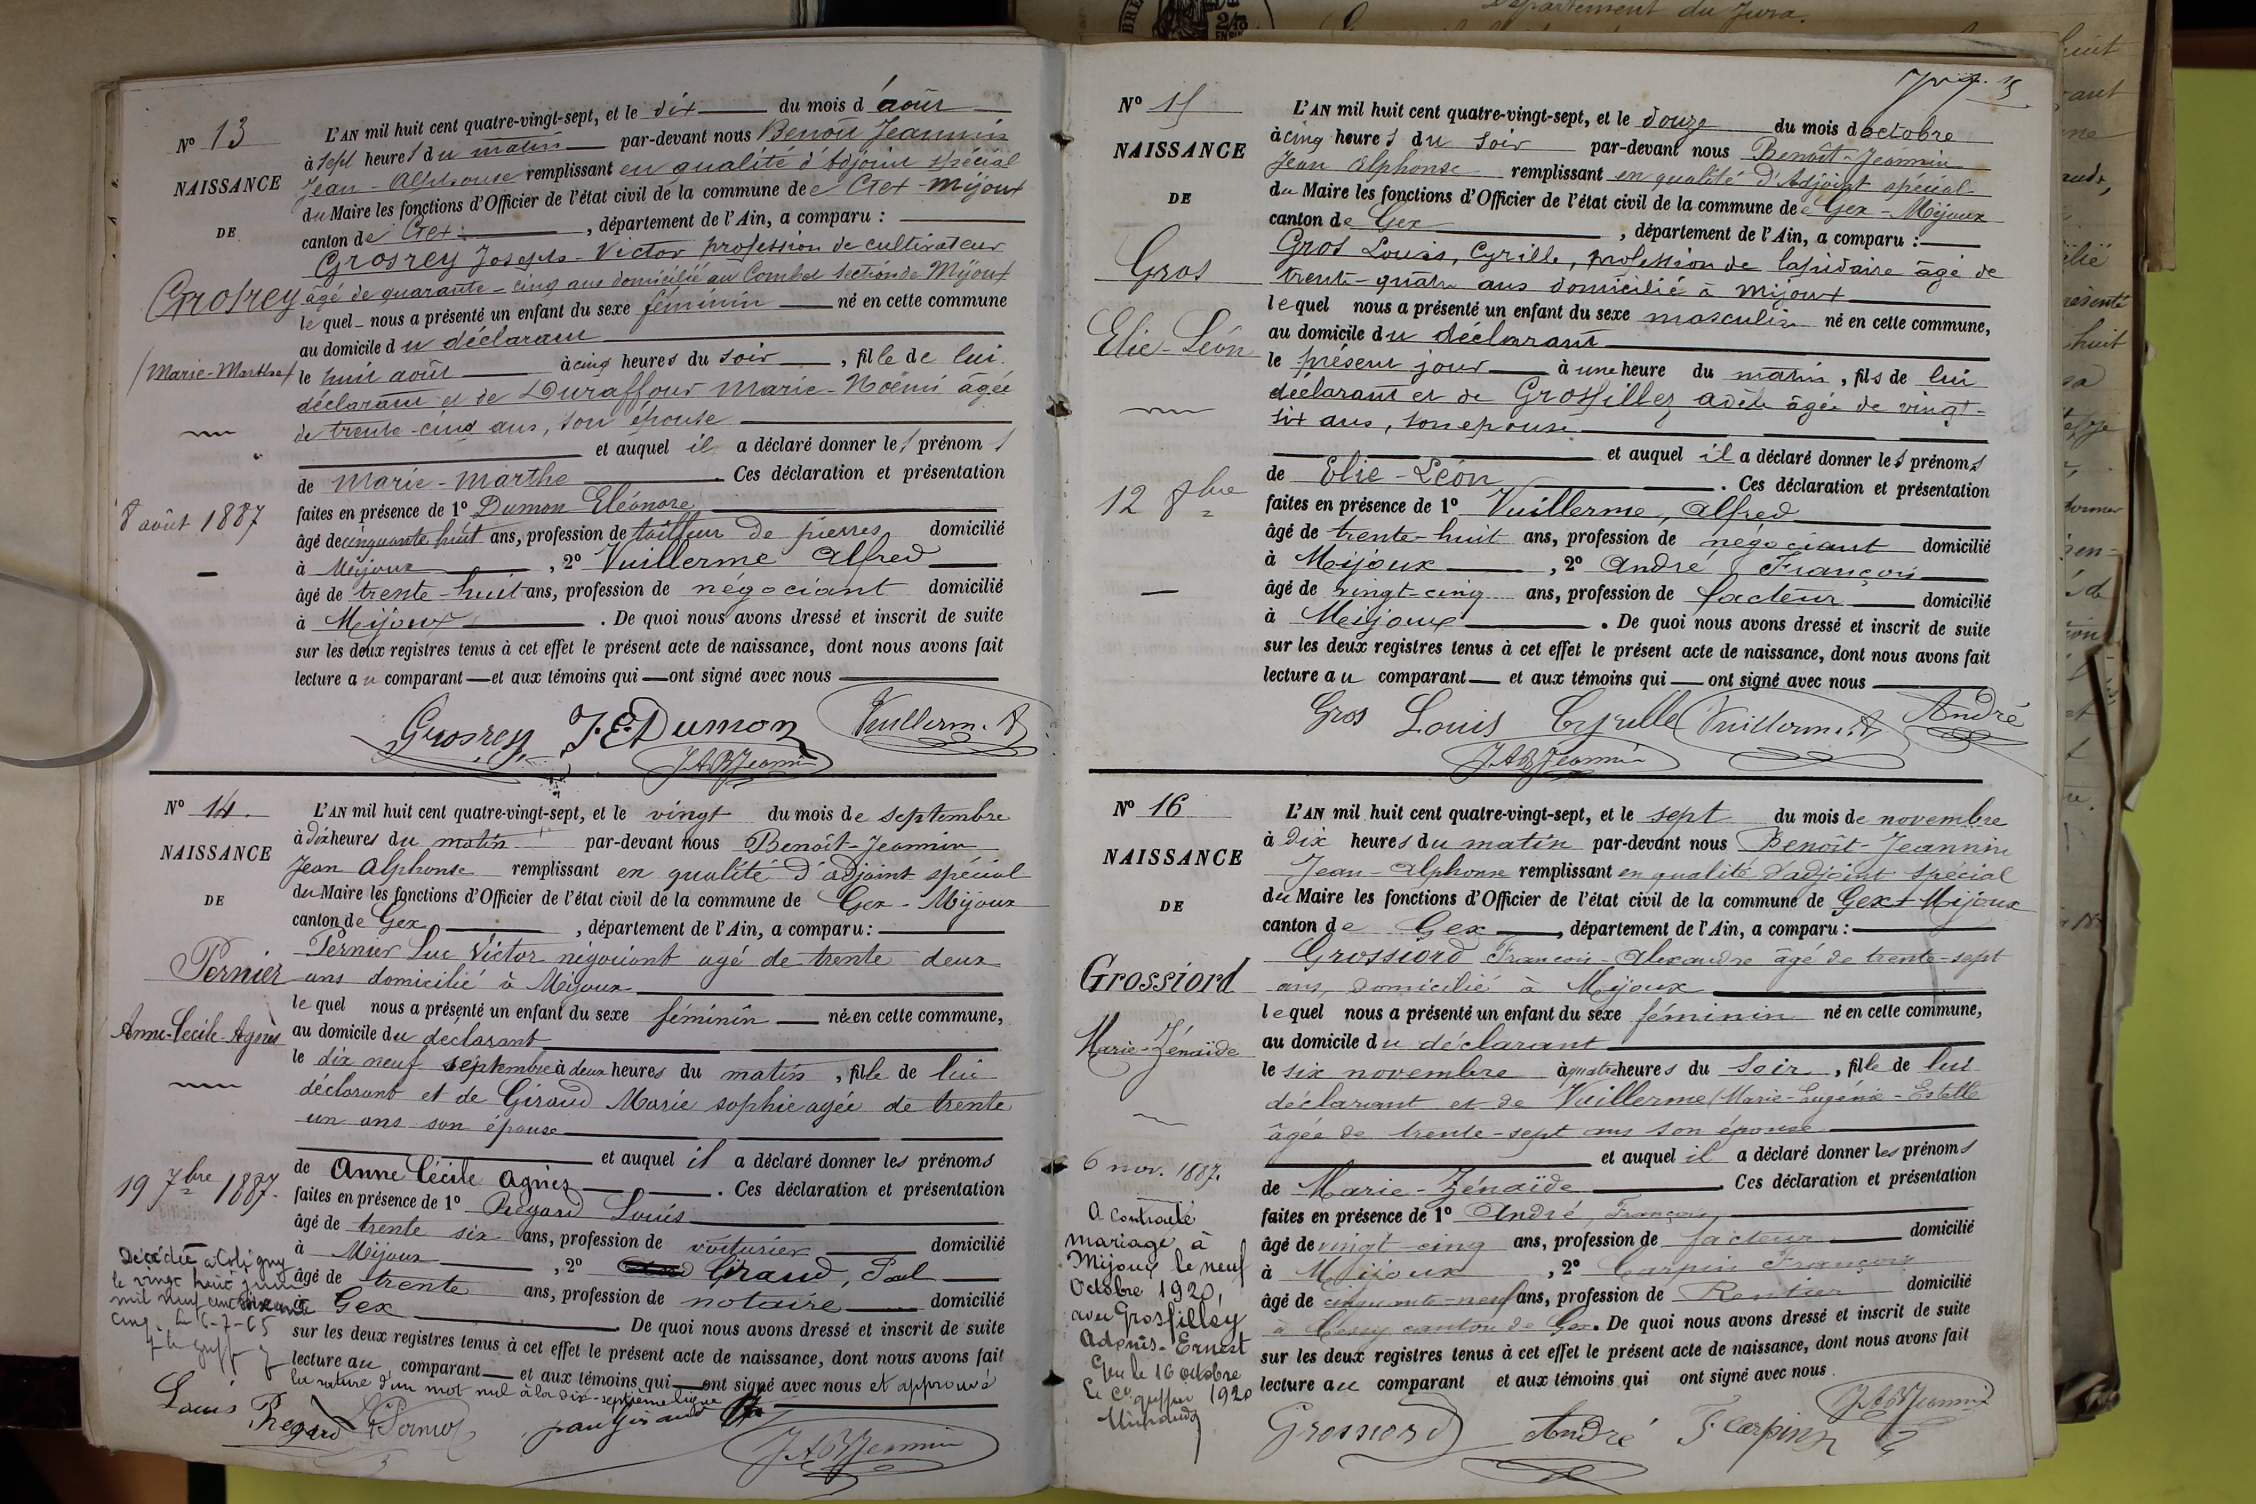 Département du Jura.
N° 13
NAISSANCE
DE
Grosrey
(Marie-Marthe)
8 août 1887
L'AN mil huit cent quatre-vingt-sept, et le dix du mois d'août
à sept heures du matin par-devant nous Benoit Jeannin
Jean-Alphonse remplissant en qualité d'Adjoint spécial
du Maire les fonctions d'Officier de l'état civil de la commune de Gex-Mijoux
canton de Gex, département de l'Ain, a comparu :
Grosrey Joseph-Victor profession de cultivateur
âgé de quarante-cinq ans domicilié au Combet section de Mijoux
lequel nous a présenté un enfant du sexe féminin né en cette commune
au domicile du déclarant
le huit août à cinq heures du soir, fille de lui
déclarant et de Duraffour Marie-Noëmi âgée
de trente-cinq ans, son épouse
et auquel il a déclaré donner les prénoms
de Marie-Marthe. Ces déclaration et présentation
faites en présence de 1° Dumon Eléonore
âgé de cinquante huit ans, profession de tailleur de pierres domicilié
à Mijoux, 2° Vuillerme Alfred
âgé de trente-huit ans, profession de négociant domicilié
à Mijoux. De quoi nous avons dressé et inscrit de suite
sur les deux registres tenus à cet effet le présent acte de naissance, dont nous avons fait
lecture au comparant et aux témoins qui ont signé avec nous
Grosrey J. E. Dumon Vuillerm. A
J A B Jeannin
N° 14.
NAISSANCE
DE
Pernier
Anne-Cécile-Agnès
19 7bre 1887.
Décédée à Coligny
le vingt huit juin
mil neuf cent soixante
cinq. Le 6-7-65
L'AN mil huit cent quatre-vingt-sept, et le vingt du mois de septembre
à dix heures du matin par-devant nous Benoît-Jeannin
Jean Alphonse remplissant en qualité d'adjoint spécial
du Maire les fonctions d'Officier de l'état civil de la commune de Gex-Mijoux
canton de Gex, département de l'Ain, a comparu :
Pernier Luc Victor négociant agé de trente deux
ans domicilié à Mijoux
lequel nous a présenté un enfant du sexe féminin née en cette commune,
au domicile du déclarant
le dix neuf septembre à deux heures du matin, fille de lui
déclarant et de Giraud Marie sophie agée de trente
un ans son épouse
et auquel il a déclaré donner les prénoms
de Anne Cécile Agnès. Ces déclaration et présentation
faites en présence de 1° Regard Louis
âgé de trente six ans, profession de voiturier domicilié
à Mijoux, 2° Giraud, Paul
âgé de trente ans, profession de notaire domicilié
à Gex. De quoi nous avons dressé et inscrit de suite
sur les deux registres tenus à cet effet le présent acte de naissance, dont nous avons fait
lecture au comparant et aux témoins qui ont signé avec nous et approuvé
la rature d'un mot nul à la dix-septième ligne
Louis Regard Pernier paul giraud
J A B Jeannin
N° 15
NAISSANCE
DE
Gros
Elie-Léon
12 8bre
L'AN mil huit cent quatre-vingt-sept, et le douze du mois d'octobre
à cinq heures du soir par-devant nous Benoît-Jeannin
Jean Alphonse remplissant en qualité d'Adjoint spécial
du Maire les fonctions d'Officier de l'état civil de la commune de Gex-Mijoux
canton de Gex, département de l'Ain, a comparu :
Gros Louis, Cyrille, profession de lapidaire âgé de
trente-quatre ans domicilié à Mijoux
lequel nous a présenté un enfant du sexe masculin né en cette commune,
au domicile du déclarant
le présent jour à une heure du matin, fils de lui
déclarant et de Grosfilley adèle âgée de vingt-
six ans, son epouse
et auquel il a déclaré donner les prénoms
de Elie-Léon. Ces déclaration et présentation
faites en présence de 1° Vuillerme, Alfred
âgé de trente-huit ans, profession de négociant domicilié
à Mijoux, 2° André François
âgé de vingt-cinq ans, profession de facteur domicilié
à Mijoux. De quoi nous avons dressé et inscrit de suite
sur les deux registres tenus à cet effet le présent acte de naissance, dont nous avons fait
lecture au comparant et aux témoins qui ont signé avec nous
Gros Louis Cyrille Vuillerm. A André
J A B Jeannin
N° 16
NAISSANCE
DE
Grossiord
Marie-Zénaïde
6 nov. 1887.
A contracté
mariage à
Mijoux le neuf
Octobre 1920,
avec Grosfilley
Adonis-Ernest
Gex le 16 octobre
1920
L'AN mil huit cent quatre-vingt-sept, et le sept du mois de novembre
à dix heures du matin par-devant nous Benoît-Jeannin
Jean-Alphonse remplissant en qualité d'adjoint spécial
du Maire les fonctions d'Officier de l'état civil de la commune de Gex-Mijoux
canton de Gex, département de l'Ain, a comparu :
Grossiord François-Alexandre âgé de trente-sept
ans, domicilié à Mijoux
lequel nous a présenté un enfant du sexe féminin né en cette commune,
au domicile du déclarant
le six novembre à quatre heures du soir, fille de lui
déclarant et de Vuillerme (Marie-Eugénie-Estelle
âgée de trente-sept ans son épouse
et auquel il a déclaré donner les prénoms
de Marie-Zénaïde. Ces déclaration et présentation
faites en présence de 1° André, François
âgé de vingt-cinq ans, profession de facteur domicilié
à Mijoux, 2° Carpin François
âgé de cinquante-neuf ans, profession de Rentier domicilié
à Cessy canton de Gex. De quoi nous avons dressé et inscrit de suite
sur les deux registres tenus à cet effet le présent acte de naissance, dont nous avons fait
lecture au comparant et aux témoins qui ont signé avec nous.
Grossiord André F Carpin J A B Jeannin